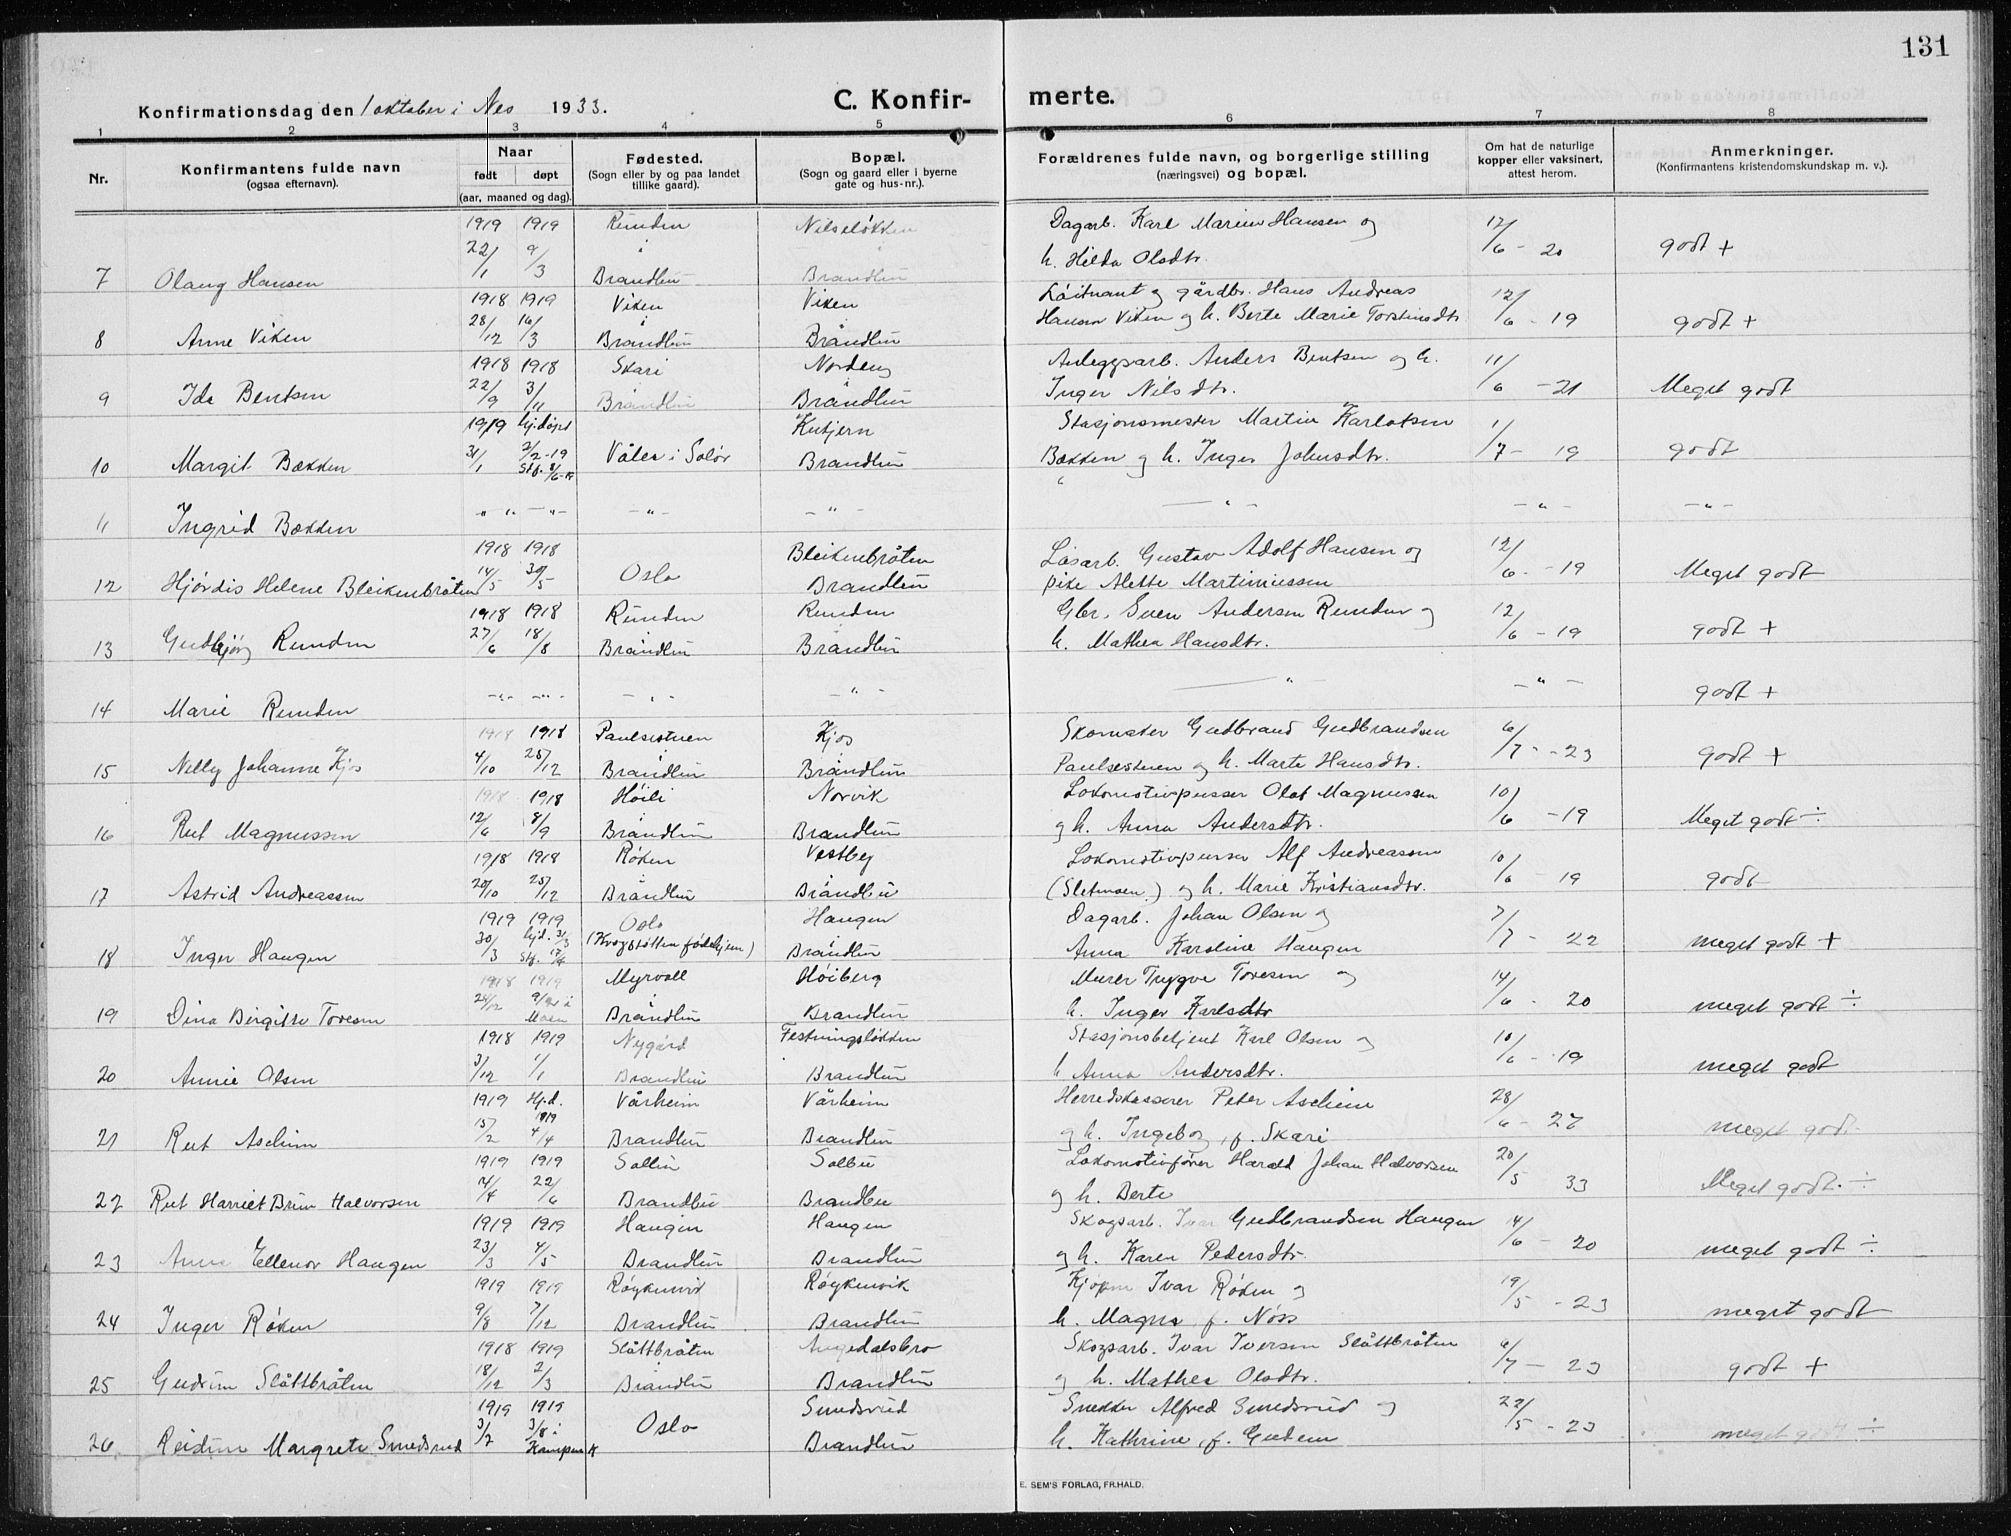 131
Konfirmationsdag den 1 oktober i Nes 1933.
C. Konfir- merte.
1 2 3 4 5 6 7 8
Nr.
Konfirmantens fulde navn
(ogsaa efternavn).
Naar
født døpt
(aar, maaned og dag).
Fødested.
(Sogn eller by og paa landet
tillike gaard).
Bopæl.
(Sogn og gaard eller i byerne
gate og hus-nr.).
Forældrenes fulde navn, og borgerlige stilling
(næringsvei) og bopæl.
Om hat de naturlige
kopper eller vaksinert,
attest herom.
Anmerkninger.
(Konfirmantens kristendomskundskap m. v.).
1919 1919 Runden Nilseløkken Dagarb. Karl Marius Hansen og 12/6 - 20 godt +
7 Olaug Hansen 22/1 9/3 Brandbu Brandbu h. Hilda Olsdtr.
1918 1919 Viken Viken Løitnant og gårdbr. Hans Andreas 12/6 - 19 godt +
8 Anne Viken 28/12 16/3 i Brandbu i Brandbu Hansen Viken og h. Berte Marie Torstensdtr
1918 1918 Skari Nordeng Anleggsarb. Anders Bentsen og h. 11/6 - 21 Meget godt
9 Ida Bentsen 22/9 3/11 Brandbu i Brandbu Inger Nilsdtr.
1919 hj.døpt Kutjern Stasjonsmester Martin Karlotsen 1/7 - 19 godt
10 Margit Bækken 31/1 2/2-19 Stf. 8/6-19 Våler i Solør Brandbu Bækken og h. Inger Johnsdtr.
11 Ingrid Bækken -"- -"- -"- -"- -"- -"- -"-
1918 1918 Bleikenbråten Løsarb. Gustav Adolf Hansen og 12/6 - 19 Meget godt
12 Hjørdis Helene Bleikenbråten 14/5 30/5 Oslo Brandbu pike Alette Martiniussen
1918 1918 Runden Runden Gbr. Sven Andersen Runden og 12/6 - 19 godt +
13 Gudbjørg Runden 27/6 18/8 Brandbu Brandbu h. Mathea Hansdtr.
14 Marie Runden -"- -"- -"- -"- -"- -"- godt +
1918 1918 Paulsestuen Kjos Skomaker Gudbrand Gudbrandsen 6/7 - 23 godt +
15 Nelly Johanne Kjos 4/10 25/12 i Brandbu i Brandbu Paulsestuen og h. Marte Hansdtr.
1918 1918 Høili Norvik Lokomotivpusser Olof Magnussen 10/6 - 19 Meget godt ÷
16 Rut Magnussen 12/6 8/9 Brandbu Brandbu og h. Anna Andersdtr.
1918 1918 Røken Vestby Lokomotivpusser Alf Andreassen 10/6 - 19 godt
17 Astrid Andreassen 20/10 25/12 Brandbu Brandbu (Sletmoen) og h. Marie Kristiansdtr.
1919 1919 Oslo Haugen Dagarb. Johan Olsen og 7/7 - 22 meget godt +
18 Inger Haugen 30/3 hjd. 31/3 Stf. 17/4 (Krogstøtten fødehjem) Brandbu Anna Karoline Haugen
1918 1919 Myrvoll Høiberg Murer Trygve Toresen og 14/6 - 20 meget godt ÷
19 Dina Birgitte Toresen Brandbu Brandbu h. Inger Karlsdtr
1918 1919 Nygård Festningsløkken Stasjonsbetjent Karl Olsen og 10/6 - 19 meget godt
20 Annie Olsen 3/12 1/1 Brandbu Brandbu h Anna Andersdtr.
1919 Hj.d. 1919 Vårheim Vårheim Herredskasserer Peter Ascheim 28/6 - 27 meget godt
21 Rut Ascheim 15/2 4/4 Brandbu Brandbu og h. Ingeborg, f. Skari
1919 1919 Solbu Solbu Lokomotivfører Harald Johan Halvorsen 20/5 33 Meget godt. ÷
22 Rut Harriet Brun Halvorsen 4/4 22/6 Brandbu Brandbu og h. Berte
1919 1919 Haugen Haugen Skogsarb. Ivar Gudbrandsen Haugen 14/6 - 20 meget godt ÷
23 Anna Ellenor Haugen 23/3 4/5 Brandbu Brandbu og h. Karen Pedersdtr.
1919 1919 Røykenvik Røykenvik Kjøpm Ivar Røken og 19/5 - 23 meget godt
24 Inger Røken 9/8 7/12 Brandbu Brandbu h. Magna f. Nøss
1918 1919 Slåttbråten Augedalsbro Skogsarb. Ivar Iversen Slåttbråten 6/7 - 23 godt +
25 Gudrun Slåttbråten 18/12 2/3 i Brandbu Brandbu og h. Mathea Olsdtr.
1919 1919 Smedsrud Snekker Alfred Smedsrud og 22/5 - 23 meget godt ÷
26 Reidun Margrete Smedsrud 3/7 3/8 i Kampen K Oslo Brandbu h. Kathrine, f. Gudem
E. SEM'S FORLAG, FR.HALD.